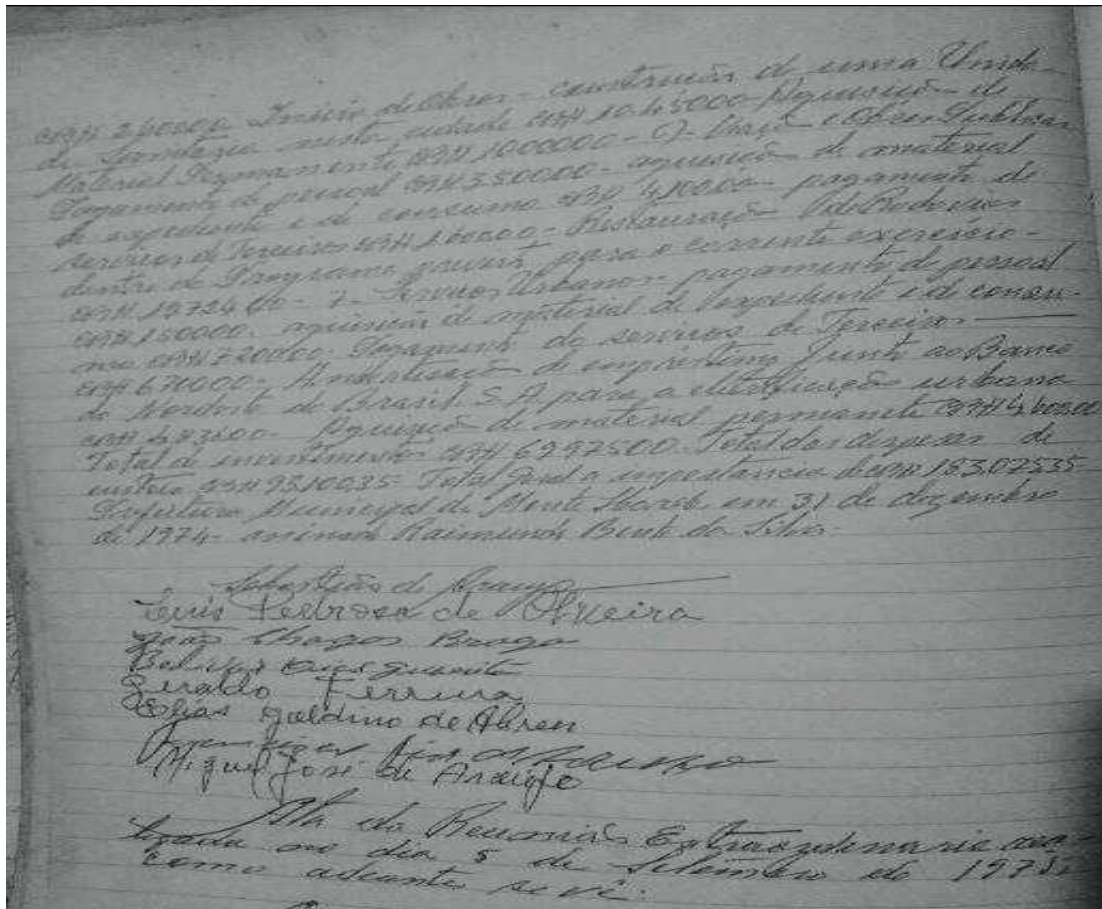 Inicio de Obras - construção de uma Unida-
de Sanitaria nesta cidade 1045000 - Aquisição de
Material Permanente 1000000 - 6) Viação e Obras Publicas
Pagamento de pessoal 350000 - aquisição de material
de expediente e de consumo 410000 - pagamento de
serviços de Terceiros 160000 - Restauração de Rodovias
dentro do Programa para o corrente exercicio -
1972460 - 7 - Serviços Urbanos - pagamento de pessoal
150000 - aquisição de material de expediente e de consu-
mo 720000 - Pagamento de serviços de Terceiros
671000 - Amortização de emprestimo junto ao Banco
do Nordeste do Brasil S.A. para a eletrificação urbana
443600 - Aquisição de material permanente 460000
Total de investimentos 6997500 - Total das despesas de
custeio 9310035 - Total Geral a importancia de 18307535
Prefeitura Municipal de Monte Horeb, em 31 de dezembro
de 1974 - assinado Raimundo da Silva.
Sebastião de Araujo
Luis Pedrosa de Oliveira
João Chagas Braga
Geraldo Ferreira
Elias Galdino de Abreu
Miguel José de Araújo
Ata da Reunião Extraordinaria rea-
lizada no dia 5 de Setembro de 1975,
como adiante se vê.